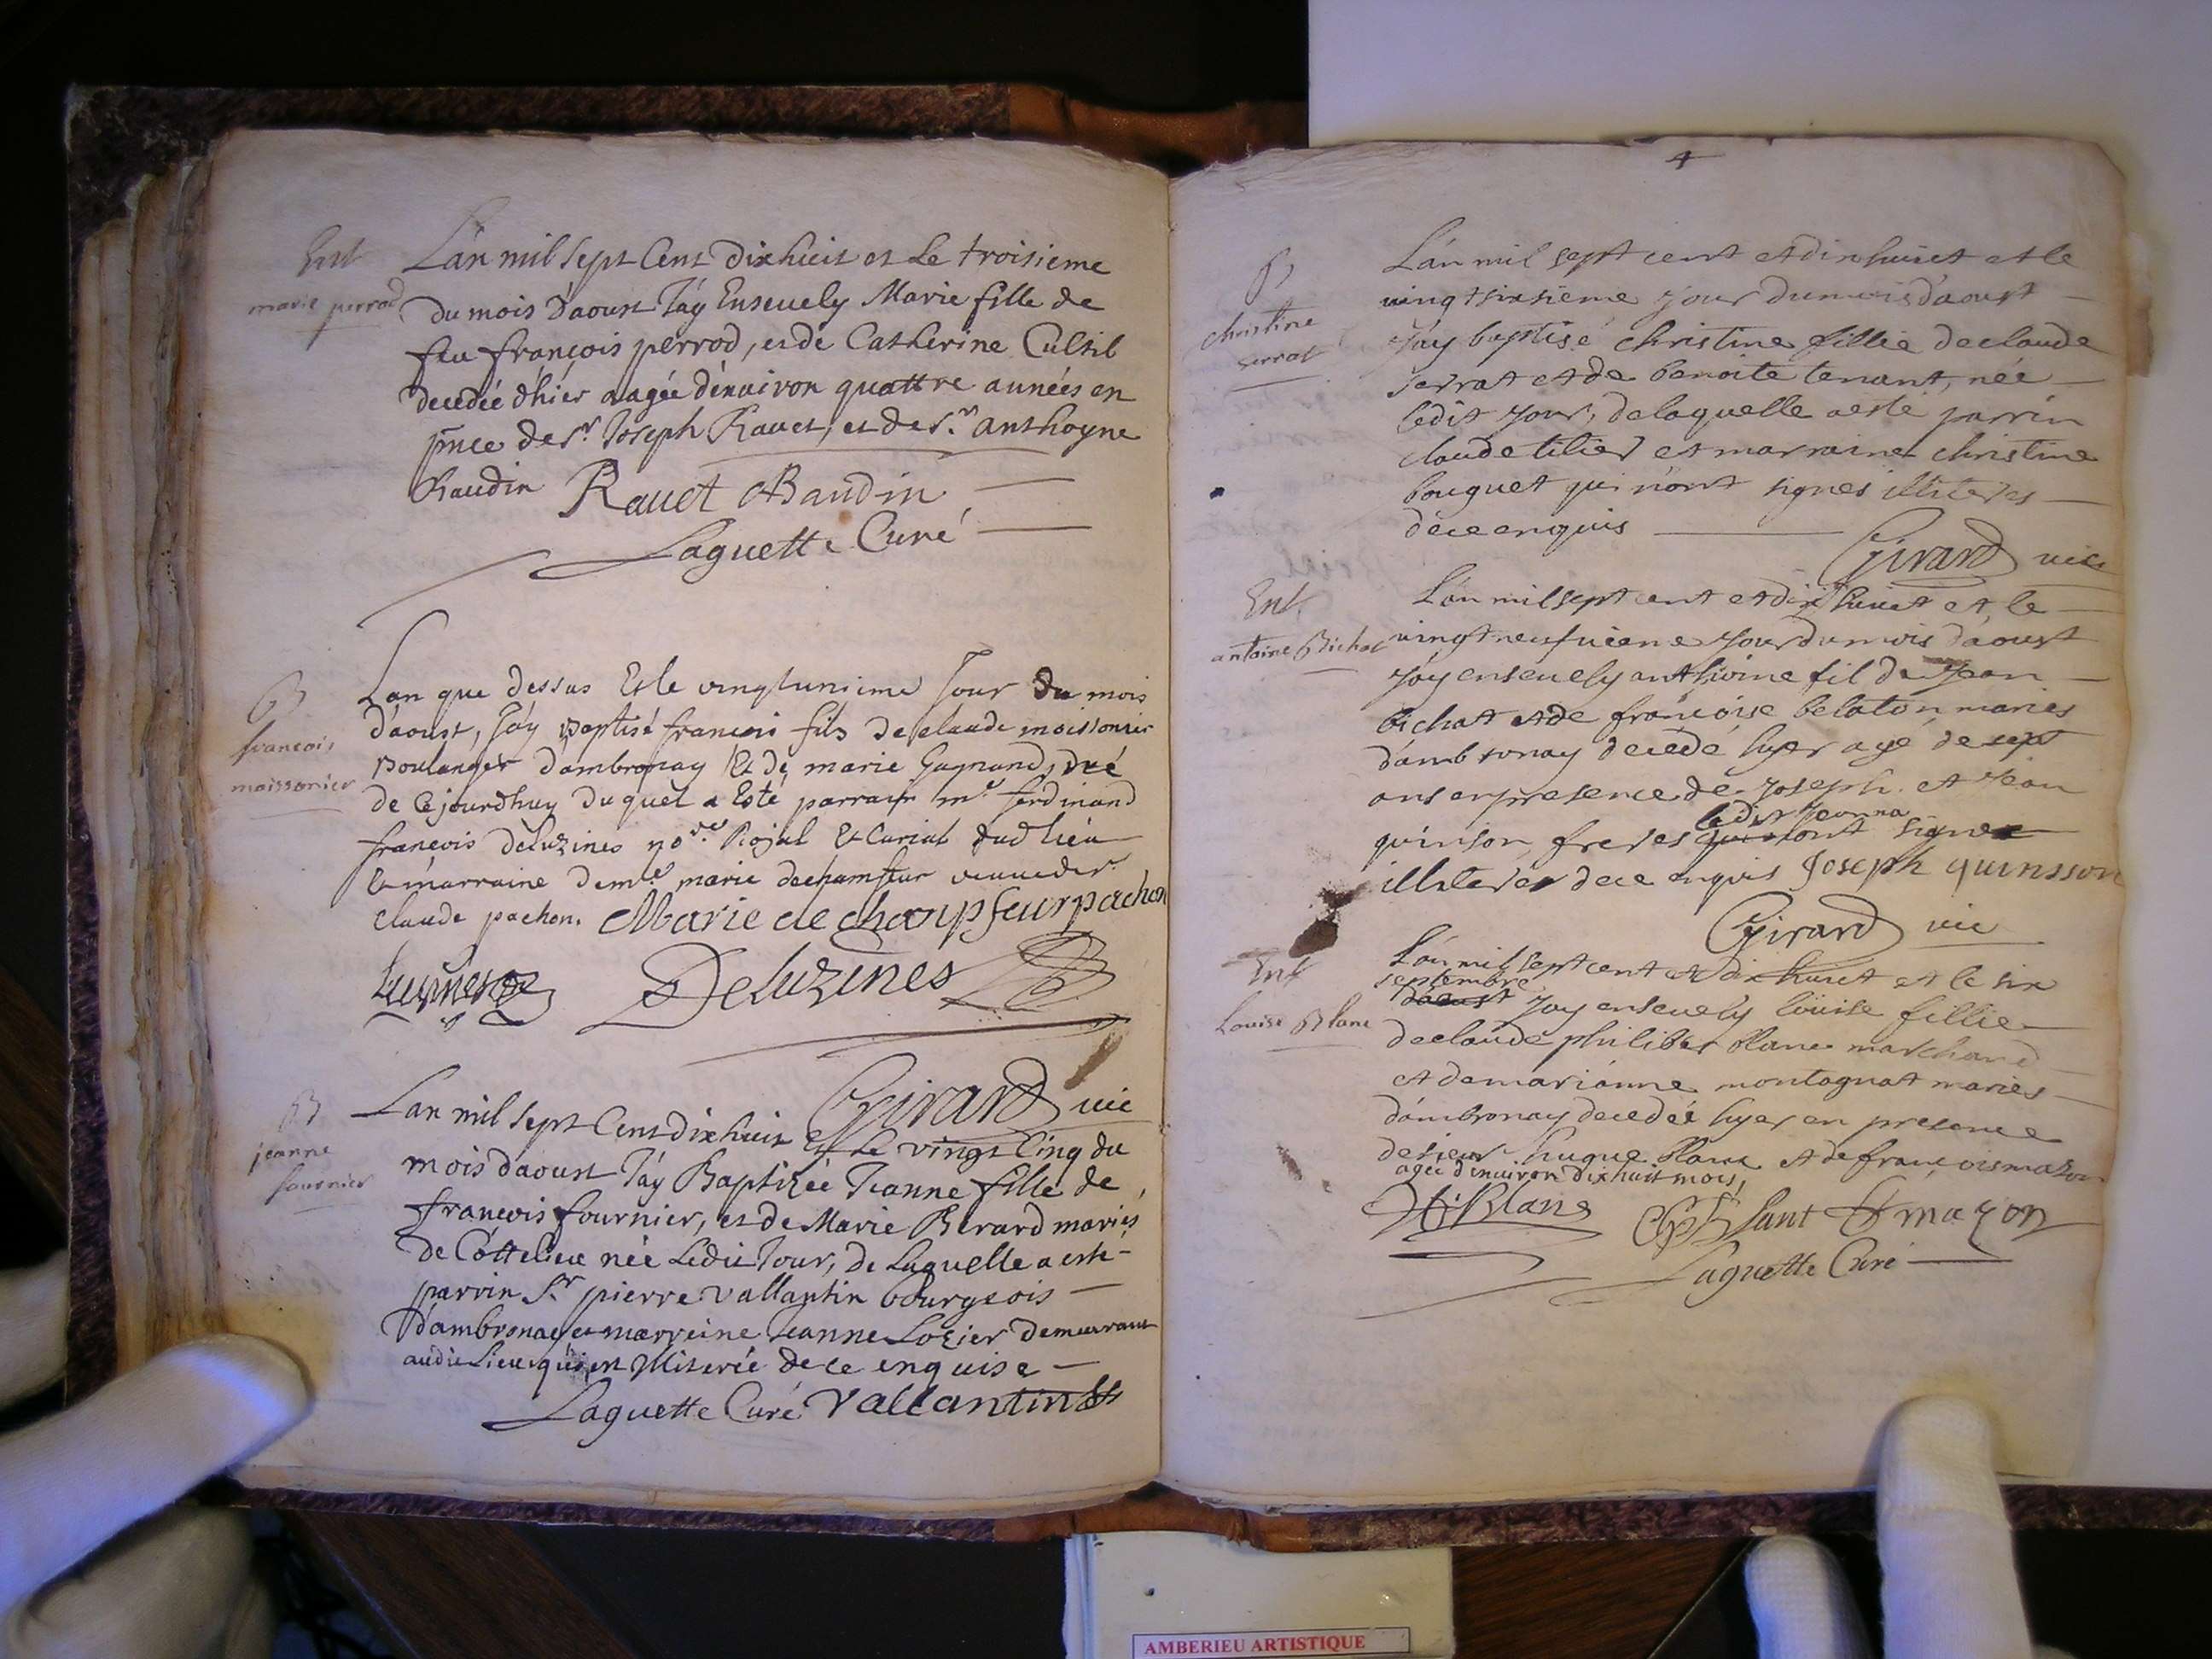 Ent
marie perrod
Lan mil sept Cens dixhuit et Le troisieme
du mois d'aoust J'ay Ensevely Marie fille de
feu françois perrod, et de Catherine Cultil
decedée d'hier aagée d'enuiron quattre années en
pnce de sr Joseph Rauet, et de sr anthoyne
Baudin Rauet Baudin
Laguette Curé
B
françois
moissonier
Lan que dessus Et le vingtunieme Jour du mois
d'aoust, J'ay Baptisé françois fils de claude moissonier
Boulanger d'ambronay Et de marie
de Cejourdhuy duquel a Esté parrain mre ferdinand
françois deluzines Royal Et Curial dud lieu
Et marraine demlle marie dechamfeur
claude pachon. Marie de champfeur pachon
Deluzines
Girard vic
B
jeanne
fournier
Lan mil sept Cens dixhuit Et Le vingt Cinq du
mois d'aoust J'ay Baptizée Jeanne fille de
françois fournier, et de Marie Berard mariés
de Cottelieu née Ledit Jour, de Laquelle a esté
parrin Sr pierre vallantin bourgeois
d'ambronay et marreine Jeanne Lozier demeurant
audit Lieu qui est illiterée de ce enquise
Laguette Curé Vallantin
4
B
christine
serrat
L'an mil sept cent et dixhuict et le
vingtsixsieme jour du mois d'aoust
j'ay baptisé christine fillie de claude
serrat et de benoite tenant, née
ledit jour, de laquelle a esté parrin
claude tilier et marraine christine
bouguet qui n'ont signés illiteres
de ce enquis
Girard vic
Ent
antoine Bichat
L'an mil sept cent et dix huict et le
vingtneufuieme jour du mois d'aoust
j'ay ensevely anthoine fil de Jean
bichat et de françoise belaton mariés
d'ambronay decedé hyer agé de sept
ans en presence de joseph et Jean
quinson freres qui n'ont signé
illiteres de ce enquis Joseph quinsson
Girard vic
Ent
Louise Blanc
L'an mil sept cent et dix huict et le six
septembre
d'aoust j'ay ensevely loüise fillie
de claude philibert blanc marchand
et de marianne montagnat mariés
d'ambronay decedée hyer en presence
de sieur hugue blanc et de françois mazon
agée d'enuiron dixhuit mois,
H. Blanc mazon
Laguette Curé
AMBERIEU ARTISTIQUE